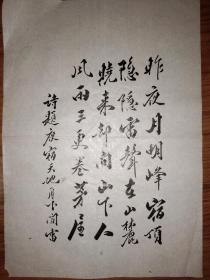 昨夜月明峰宿顶
隐隐雷聲在山麓
晓来却问山下人
风雨三更卷茅屋
詩題夜宿天池月下闻雷